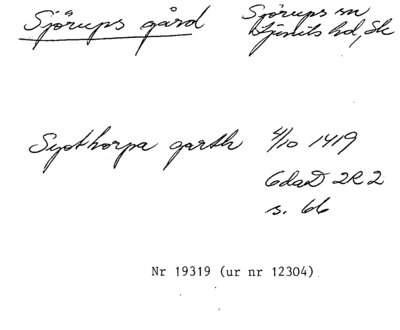 Sjörups gård Sjörups sn
Ljunits hd, Sk
Systhorpa garth 4/10 1419
GdaD 2R 2
s. 66
Nr 19319 (ur nr 12304)